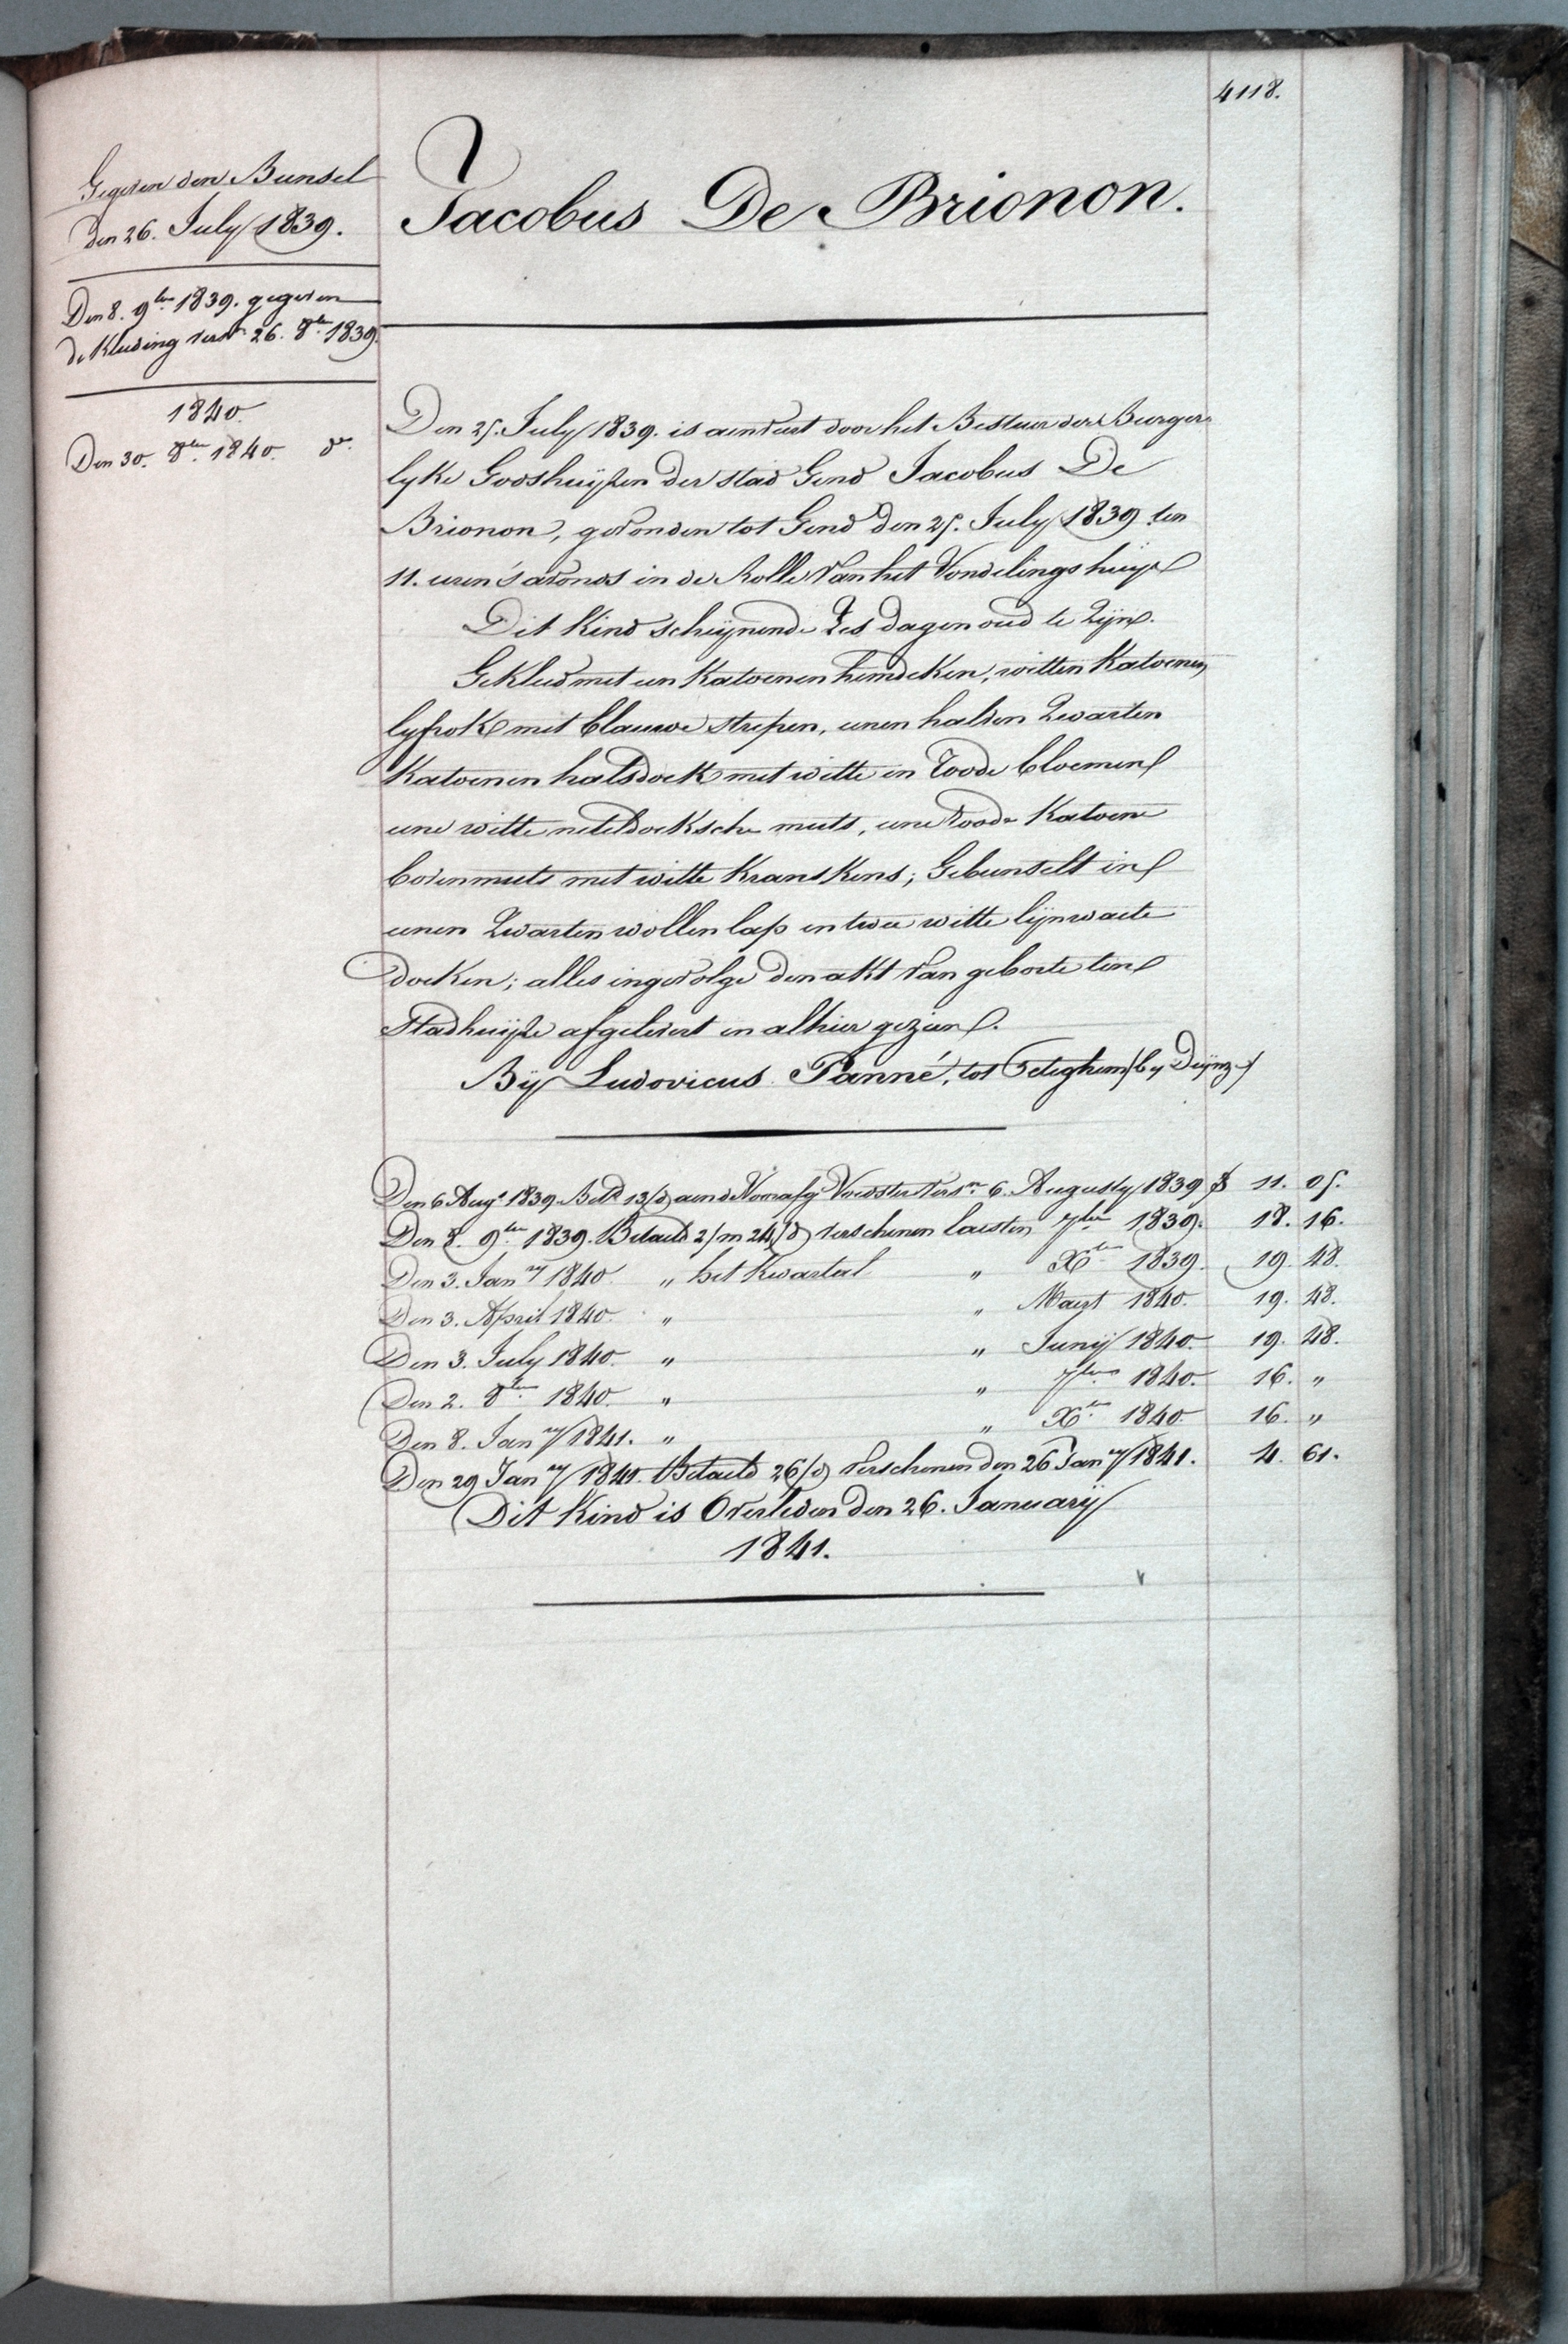 4118.
Gegeven den Bunsel
den 26. July 1839.
Den 8. 9ber 1839. gegeven
de Kleeding verst. 26. 8ber 1839.
1840.
Den 30. 8ber 1840. do.
Jacobus De Brionon.
Den 25. July 1839. is aenveert door het Bestuer der Burger-
lyke Godshuijzen der stad Gend Jacobus De
Brionon, gevonden tot Gend den 25. July 1839 ten
11. uren 's avonds in de Rolle van het Vondelingshuijs
Dit Kind scheijnende Zes dagen oud te Zijn.
Gekleed met een Katoenen hemdeken, witten Katoenen
lyfrok met blauwe strepen, eenen halven Zwarten
Katoenen halsdoek met witte en roode bloemen
eene witte neteldoeksche muts, eene roode Katoene
bovenmuts met witte Kranskens; Gebunselt in
eenen Zwarten wollen lap en twee witte lijnwaete
doeken; alles ingevolge den akt van geboorte ten
Stadhuijze afgelevert en alhier gezien.
Bij Ludovicus Panné, tot Peteghem (by Deijnze)
Den 6 Augt 1839. Betd 13/d aen de Voorafg Voedster versn 6. Augusty 1839 f 11. 05.
Den 8. 9ber 1839. Betaeld 2/m 24/d verschenen laesten 7ber 1839. 18. 16.
Den 3. Janry 1840. " het Kwartal " Xber 1839. 19. 48.
Den 3. April 1840. " " Maert 1840. 19. 48.
Den 3. July 1840. " " Junij 1840. 19. 48.
Den 2. 8ber 1840. " " 7ber 1840. 16. "
Den 8. Janry 1841. " " Xber 1840. 16. "
Den 29 Janry 1841. Betaeld 26/d verschenen den 26 Janry 1841. 4. 61.
Dit Kind is Overleden den 26. Januarij
1841.